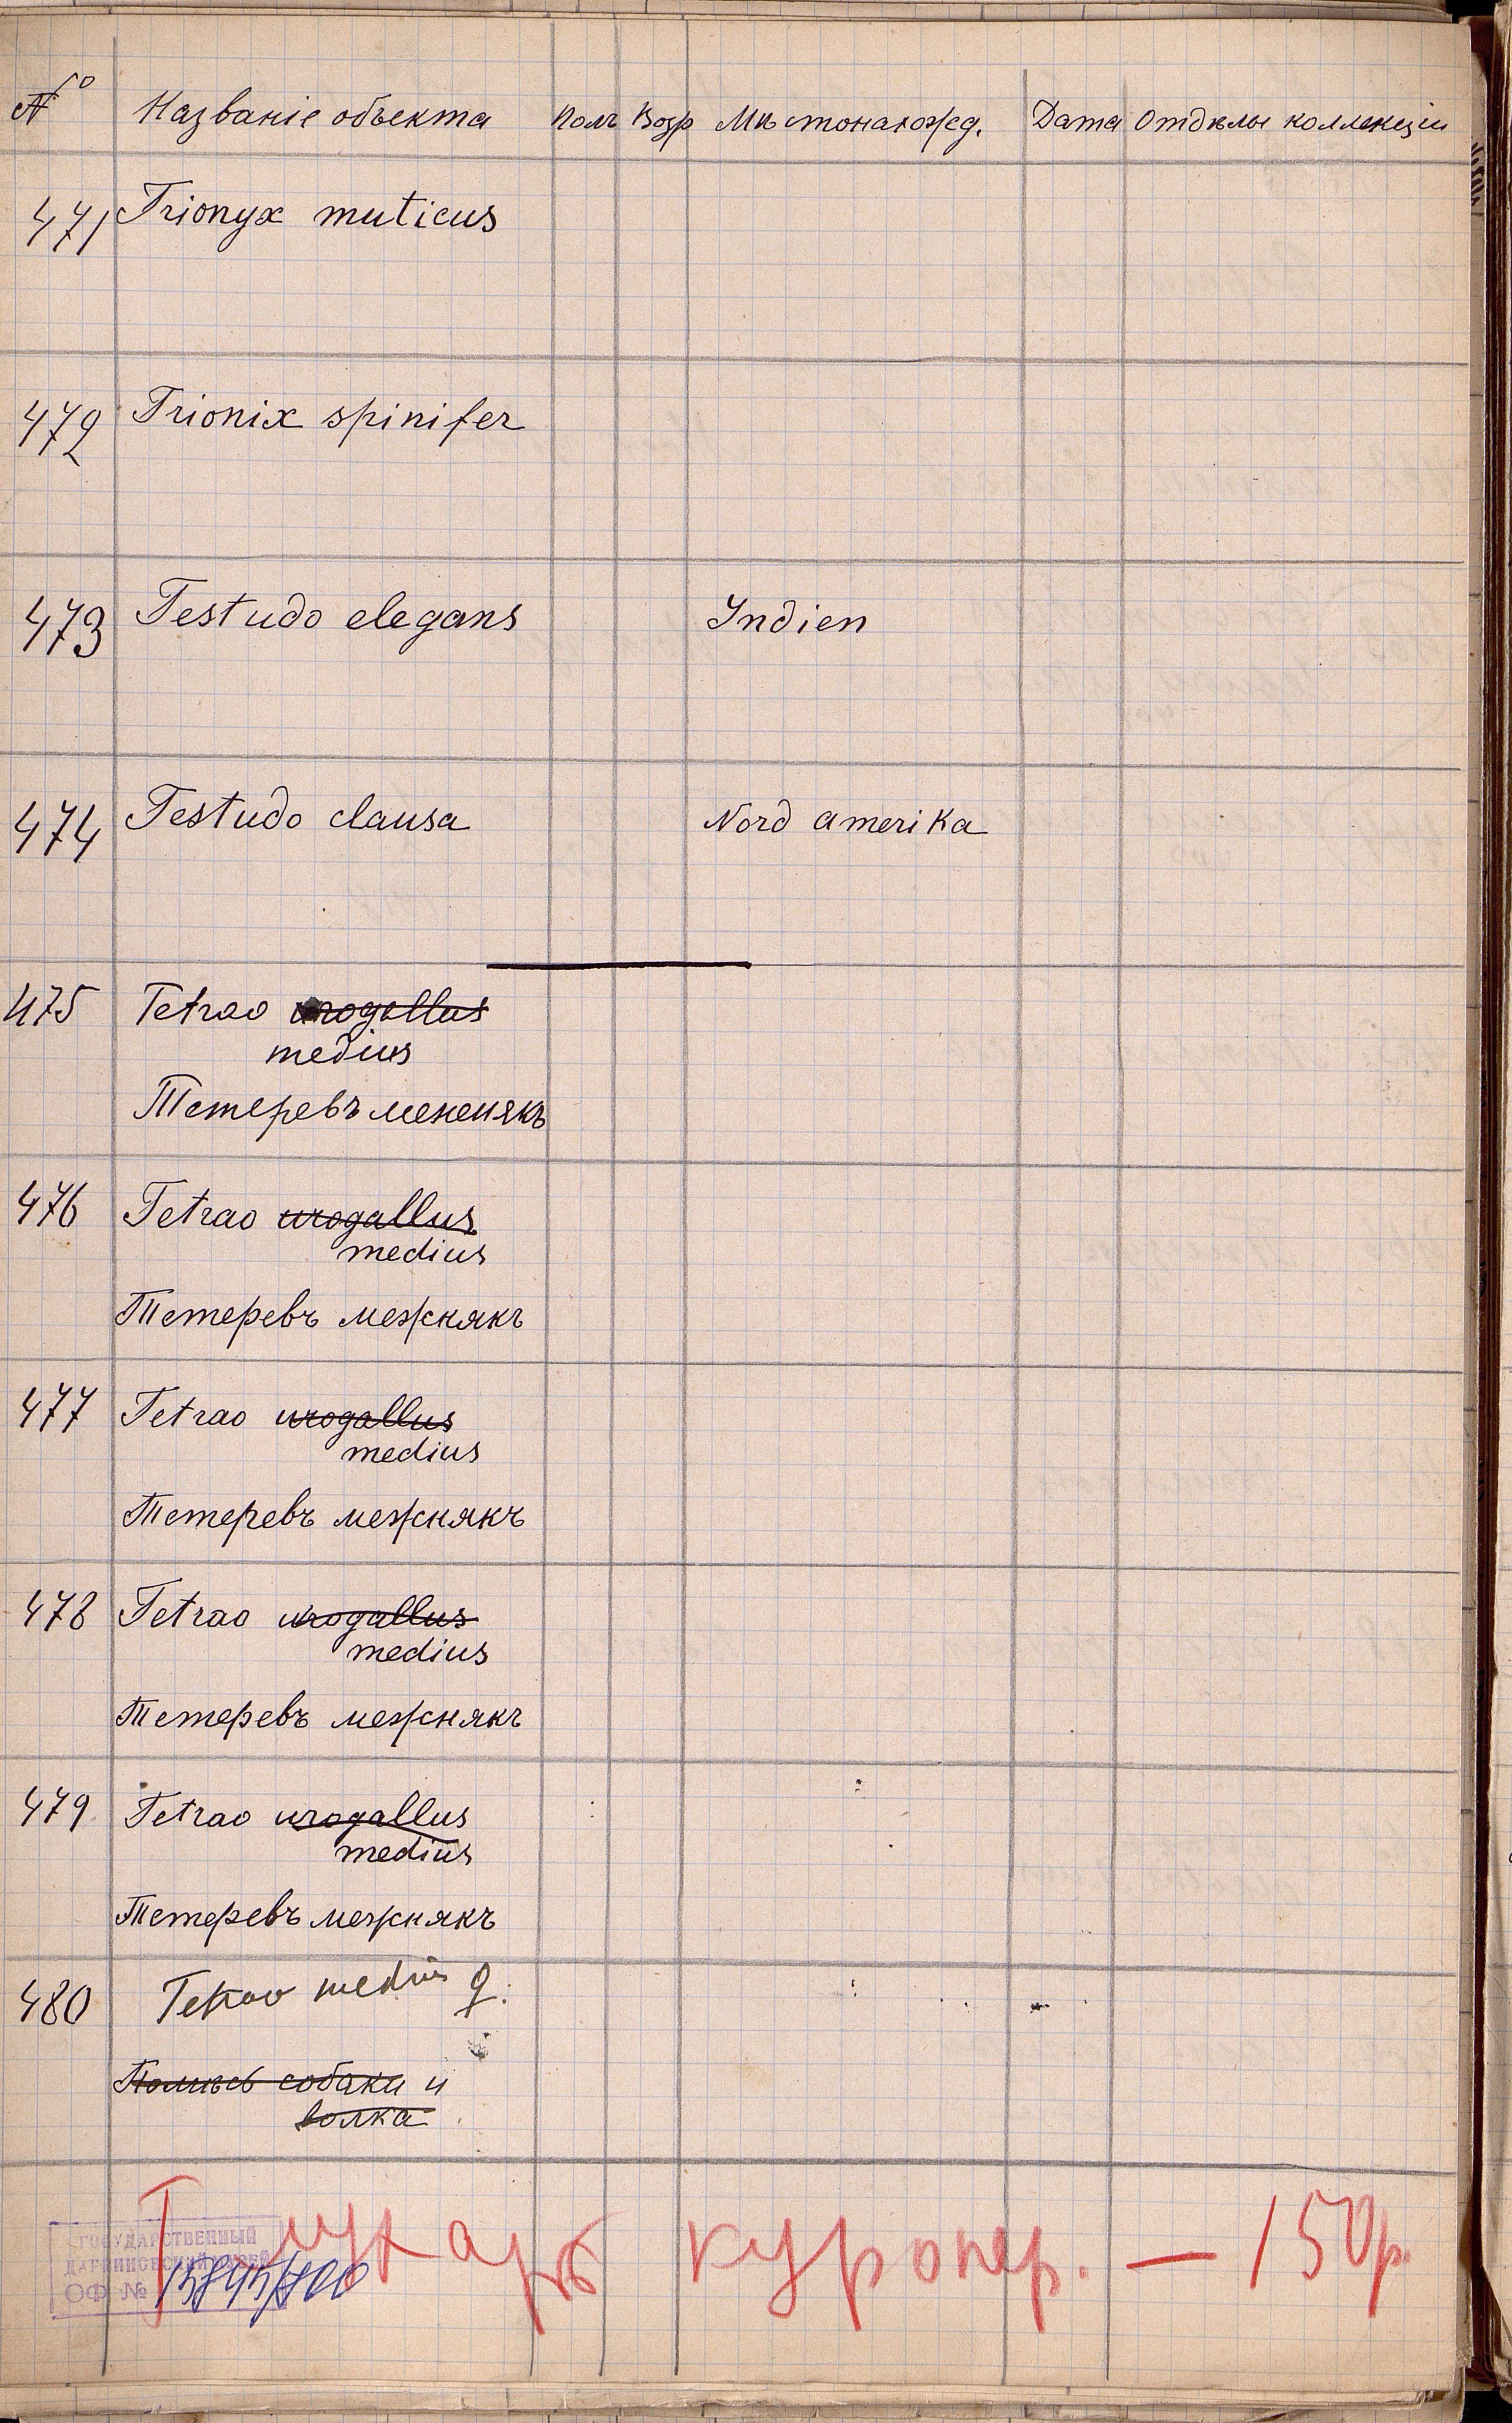 № Названіе объекта Полъ Возр Мѣстонахожд. Дата Отдѣлы коллекціи
471 Trionyx muticus
472 Trionix spinifer
473 Testudo elegans Indien
474 Testudo clausa Nord amerika
475 Tetrao urogallus
medius
Тетеревъ меженякъ
476 Tetrao urogallus
medius
Тетеревъ межнякъ
477 Tetrao urogallus
medius
Тетеревъ межнякъ
478 Tetrao urogallus
medius
Тетеревъ межнякъ
479 Tetrao urogallus
medius
Тетеревъ межнякъ
480 Tetrao medius ♀.
Помѣсь собаки и
волка
куропер. — 150р.
ГОСУДАРСТВЕННЫЙ
ДАРВИНОВСКИЙ МУЗЕЙ
ОФ №